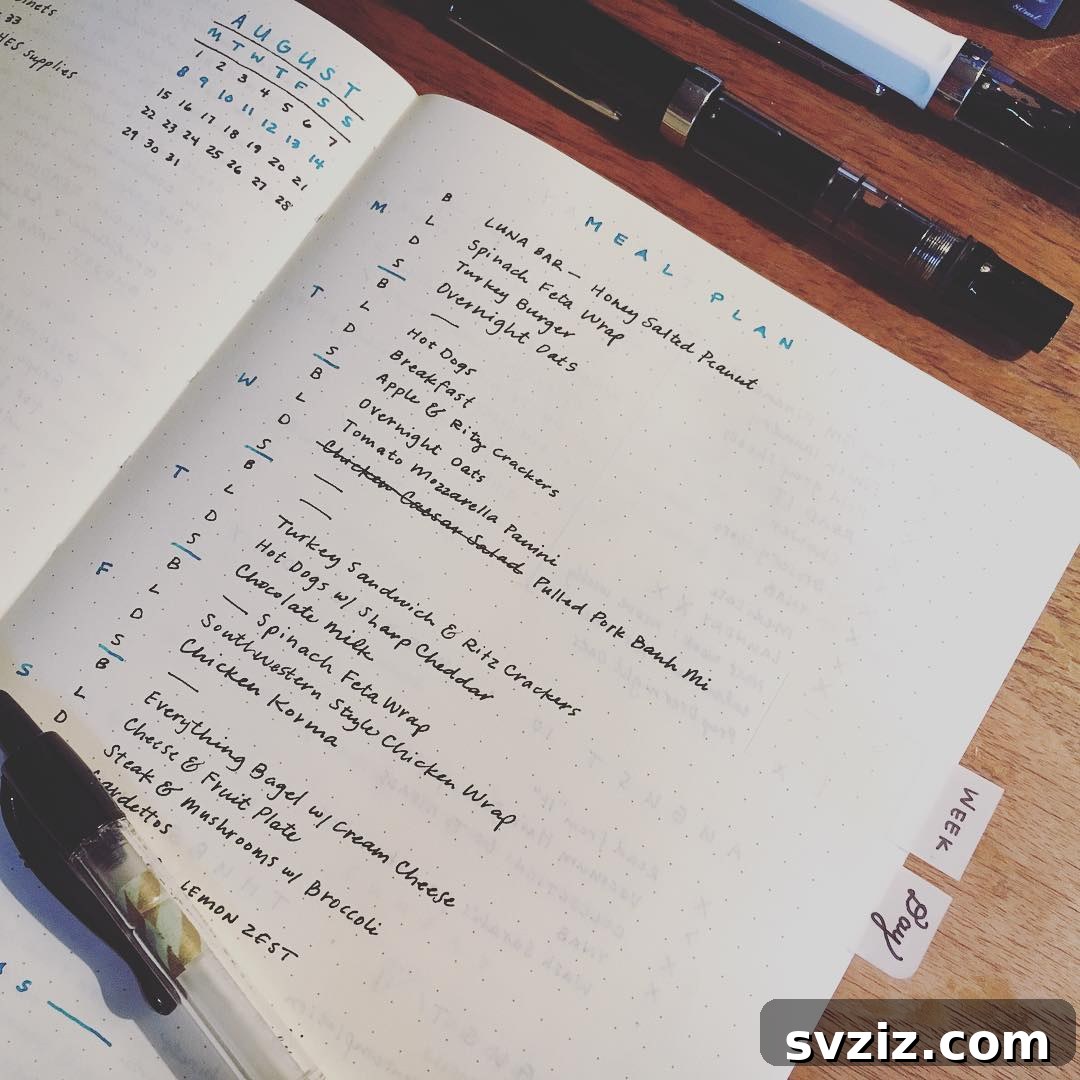 33
Supplies
AUGUST
M T W T F S S
1 2 3 4 5 6 7
8 9 10 11 12 13 14
15 16 17 18 19 20 21
22 23 24 25 26 27 28
29 30 31
MEAL PLAN
M B LUNA BAR — Honey Salted Peanut
L Spinach Feta Wrap
D Turkey Burger
S Overnight Oats
T B —
L Hot Dogs
D Breakfast
S Apple & Ritz Crackers
W B Overnight Oats
L Tomato Mozzarella Panini
D Chicken Caesar Salad Pulled Pork Banh Mi
S —
T B —
L Turkey Sandwich & Ritz Crackers
D Hot Dogs w/ Sharp Cheddar
S Chocolate Milk
F B — Spinach Feta Wrap
L Southwestern Style Chicken Wrap
D Chicken Korma
S —
S B Everything Bagel w/ Cream Cheese
L Cheese & Fruit Plate
D Steak & Mushrooms w/ Broccoli
LEMON ZEST
WEEK
Day
svziz.com